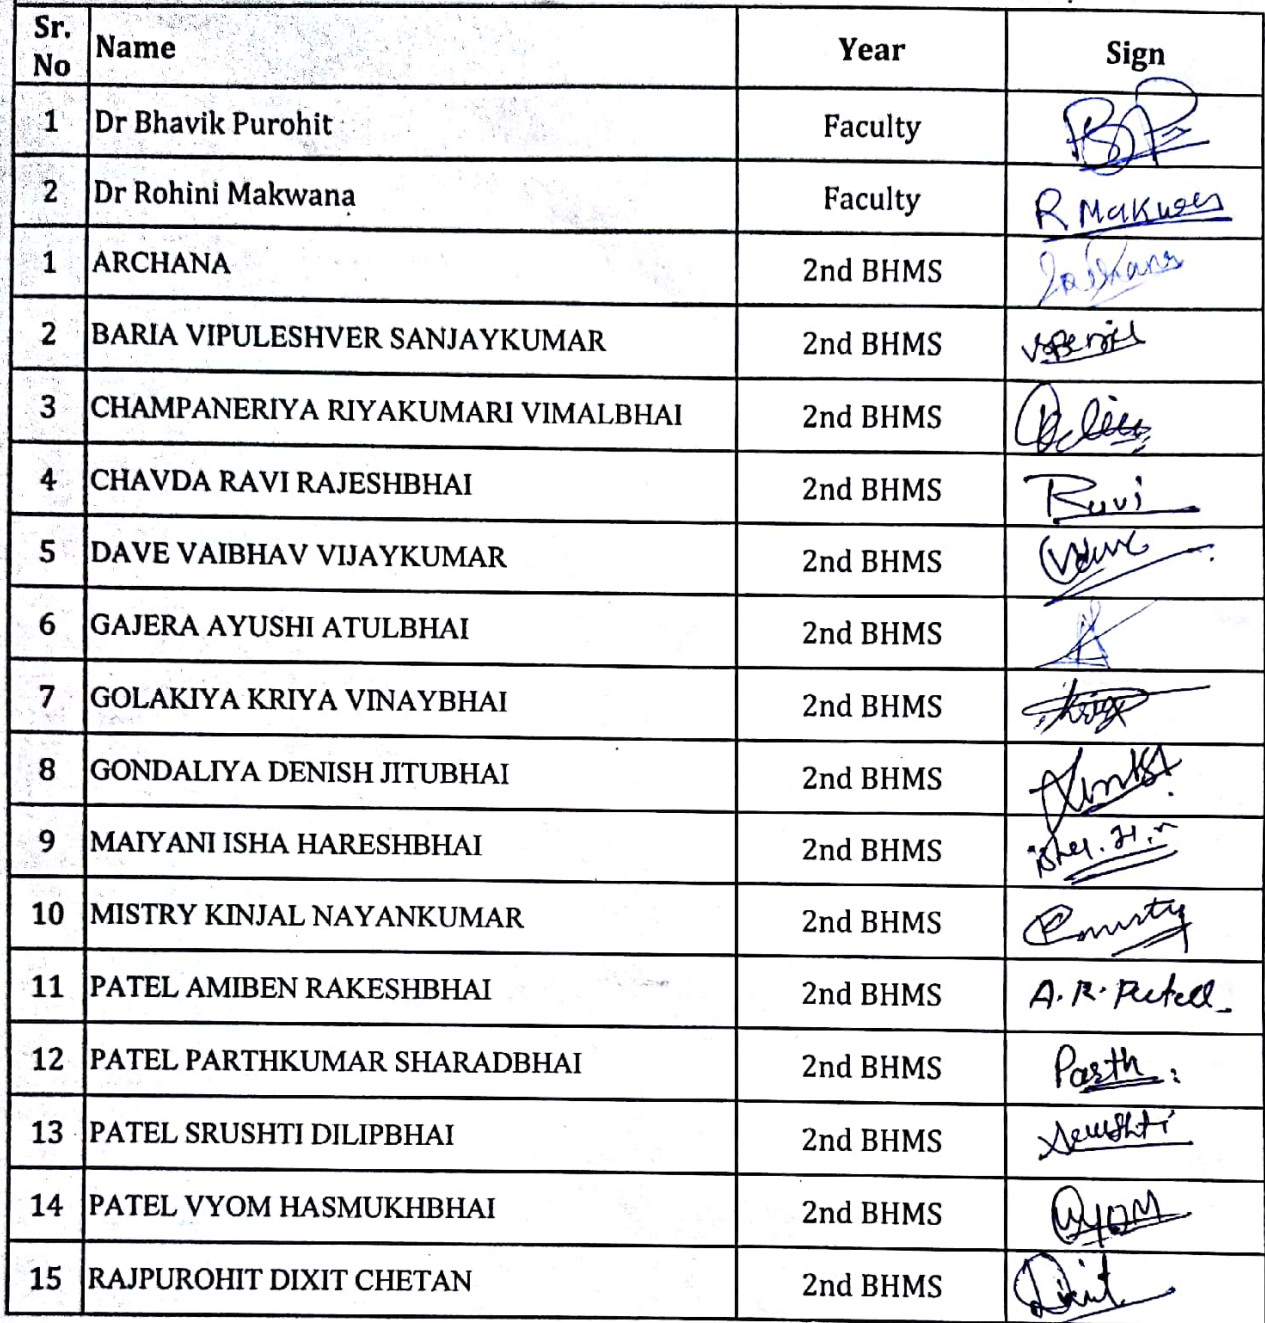 Sr. No Name Year Sign
1 Dr Bhavik Purohit Faculty
2 Dr Rohini Makwana Faculty R Makwana
1 ARCHANA 2nd BHMS
2 BARIA VIPULESHVER SANJAYKUMAR 2nd BHMS
3 CHAMPANERIYA RIYAKUMARI VIMALBHAI 2nd BHMS
4 CHAVDA RAVI RAJESHBHAI 2nd BHMS Ravi
5 DAVE VAIBHAV VIJAYKUMAR 2nd BHMS
6 GAJERA AYUSHI ATULBHAI 2nd BHMS
7 GOLAKIYA KRIYA VINAYBHAI 2nd BHMS
8 GONDALIYA DENISH JITUBHAI 2nd BHMS
9 MAIYANI ISHA HARESHBHAI 2nd BHMS
10 MISTRY KINJAL NAYANKUMAR 2nd BHMS
11 PATEL AMIBEN RAKESHBHAI 2nd BHMS A. R. Patel
12 PATEL PARTHKUMAR SHARADBHAI 2nd BHMS Parth
13 PATEL SRUSHTI DILIPBHAI 2nd BHMS Srushti
14 PATEL VYOM HASMUKHBHAI 2nd BHMS Vyom
15 RAJPUROHIT DIXIT CHETAN 2nd BHMS Dixit